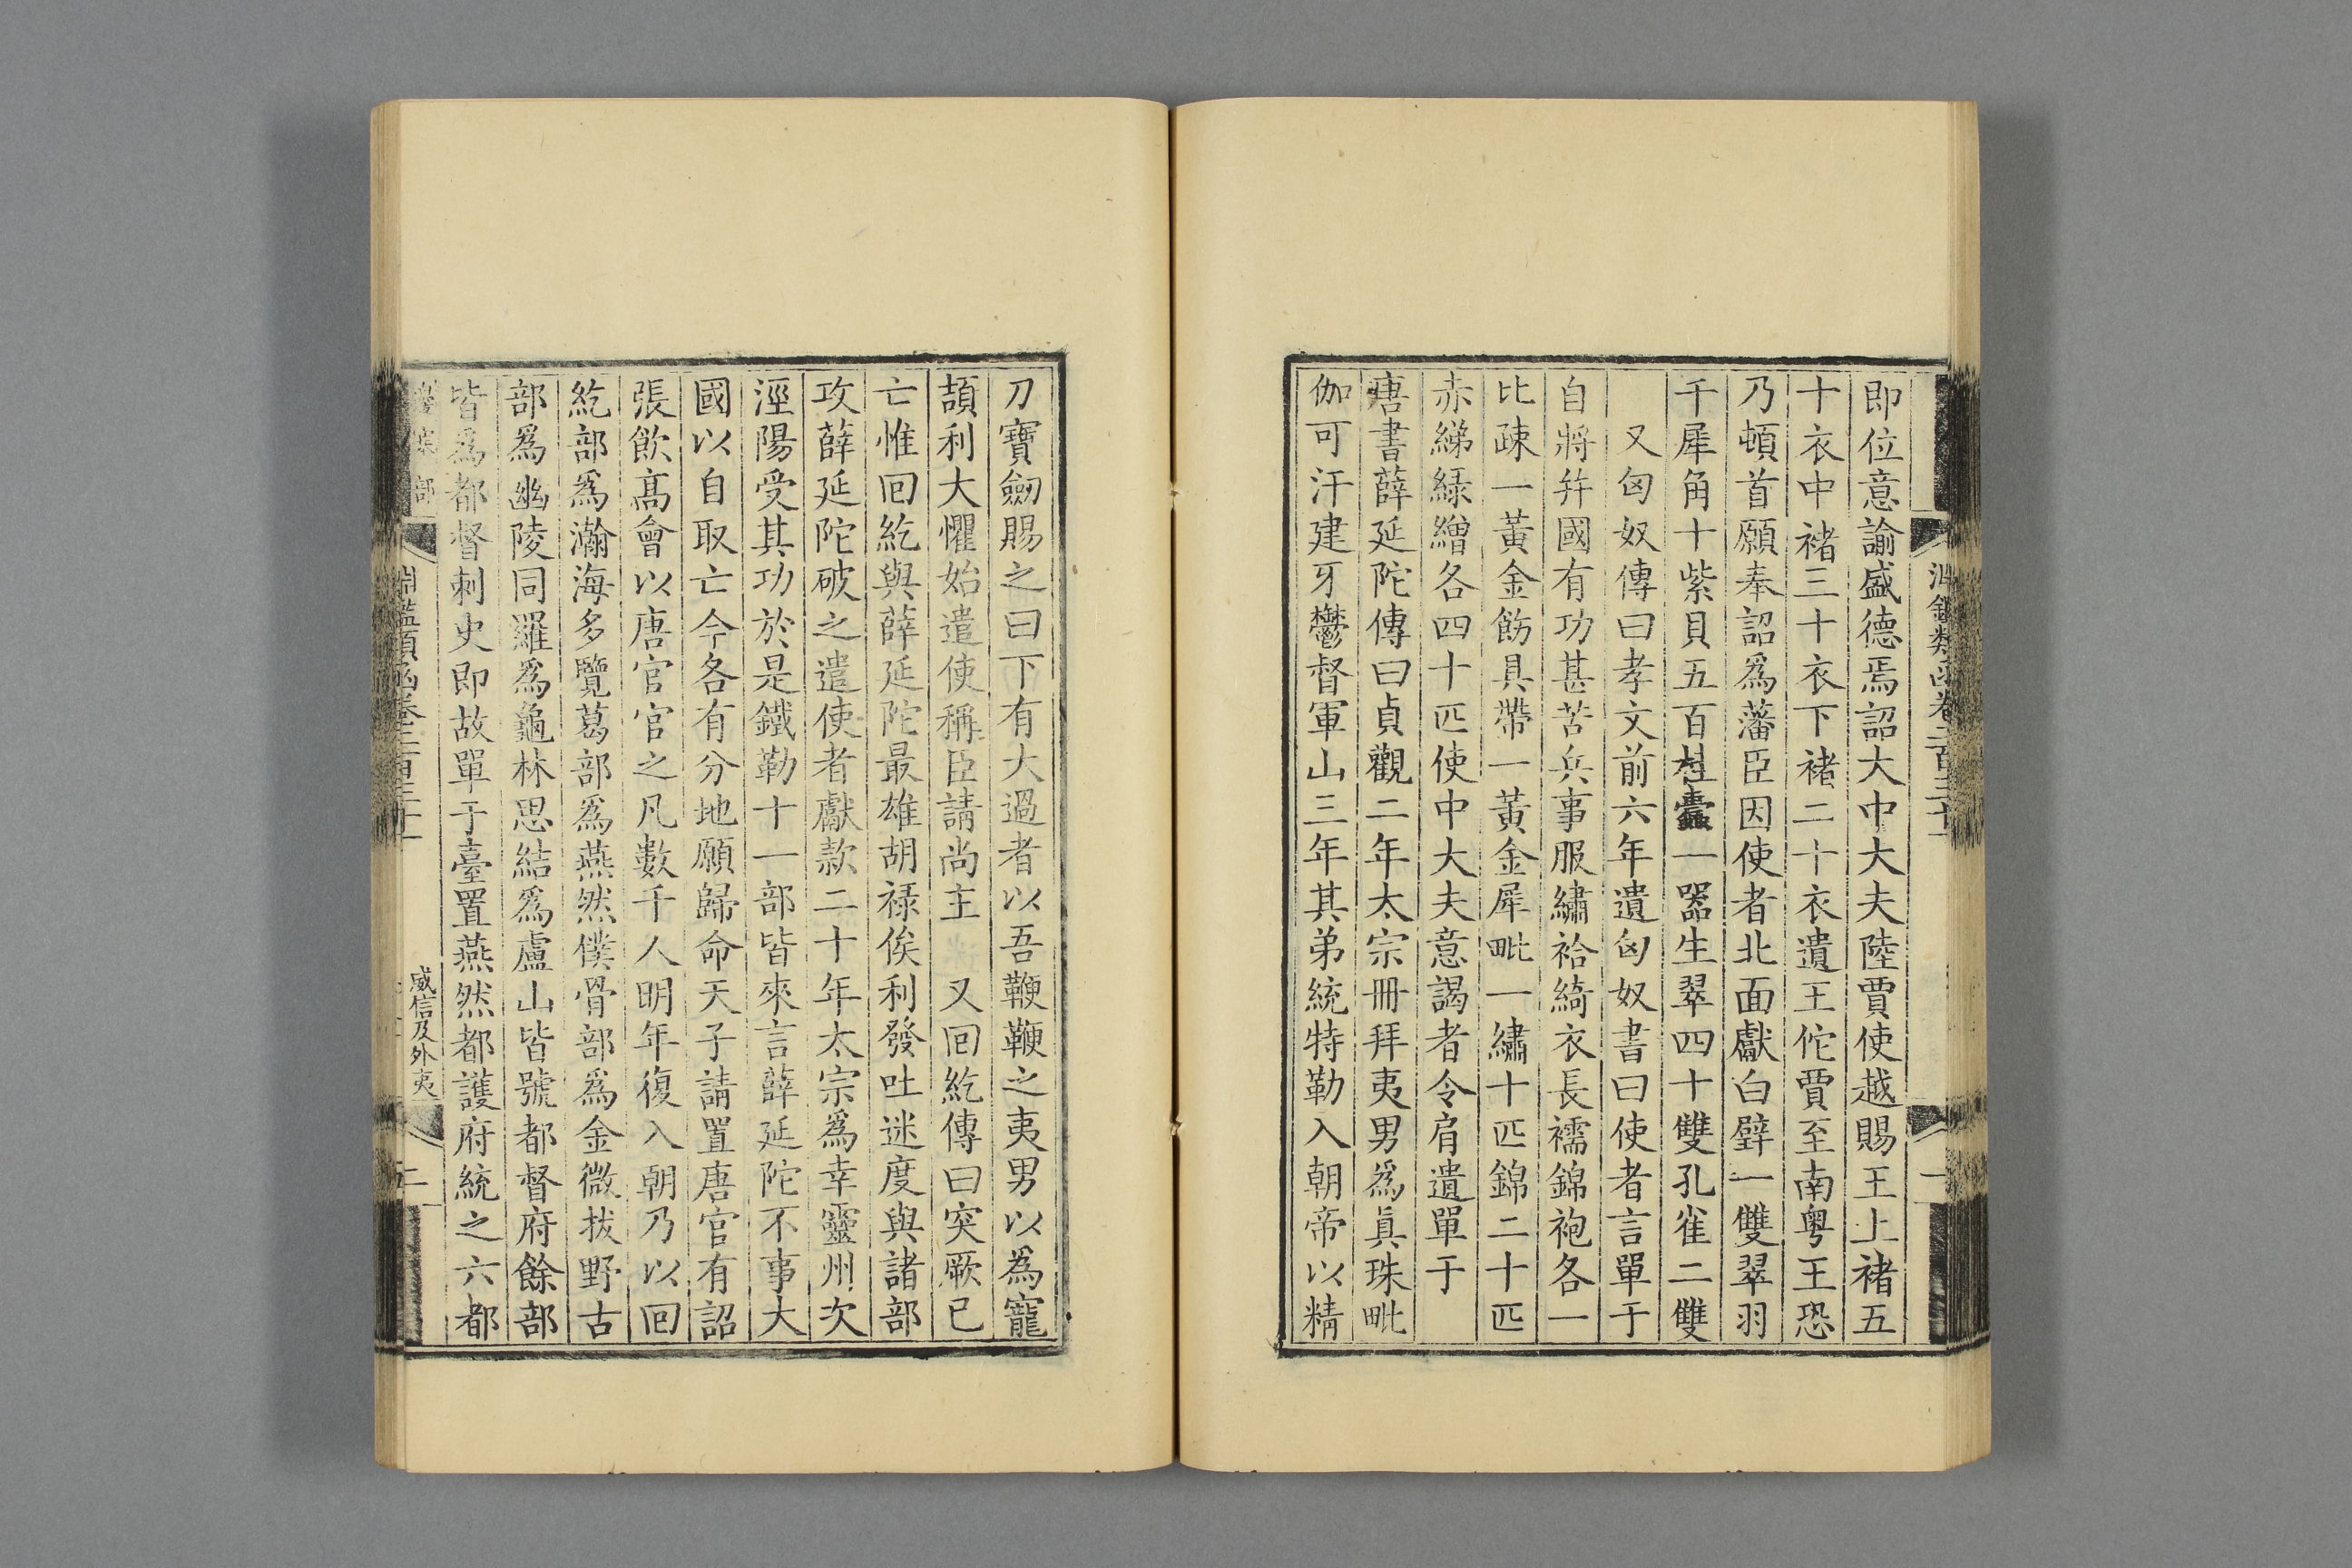 即位意諭盛德焉詔大中大夫陸賈使越賜王上褚五
十衣中褚三十衣下褚二十衣遺王佗賈至南粤王恐
乃頓首願奉詔爲藩臣因使者北面獻白璧一雙翠羽
千犀角十紫貝五百桂蠹一器生翠四十雙孔雀二雙
又匈奴傳曰孝文前六年遺匈奴書曰使者言單于
自將并國有功甚苦兵事服繡袷綺衣長襦錦袍各一
比疎一黃金飭具帶一黃金犀毗一繡十匹錦二十匹
赤綈綠繒各四十匹使中大夫意謁者令肩遺單于
唐書薛延陀傳曰貞觀二年太宗冊拜夷男爲眞珠毗
伽可汗建牙鬱督軍山三年其弟統特勒入朝帝以精
刀寶劒賜之曰下有大過者以吾鞭鞭之夷男以爲寵
頡利大懼始遣使稱臣請尚主 又回紇傳曰突厥已
亡惟回紇與薛延陀最雄胡祿俟利發吐迷度與諸部
攻薛延陀破之遣使者獻款二十年太宗爲幸靈州次
涇陽受其功於是鐵勒十一部皆來言薛延陀不事大
國以自取亡今各有分地願歸命天子請置唐官有詔
張飲高會以唐官官之凡數千人明年復入朝乃以回
紇部爲瀚海多覽葛部爲燕然僕骨部爲金微拔野古
部爲幽陵同羅爲龜林思結爲盧山皆號都督府餘部
皆爲都督刺史即故單于臺置燕然都護府統之六都
威信及外夷